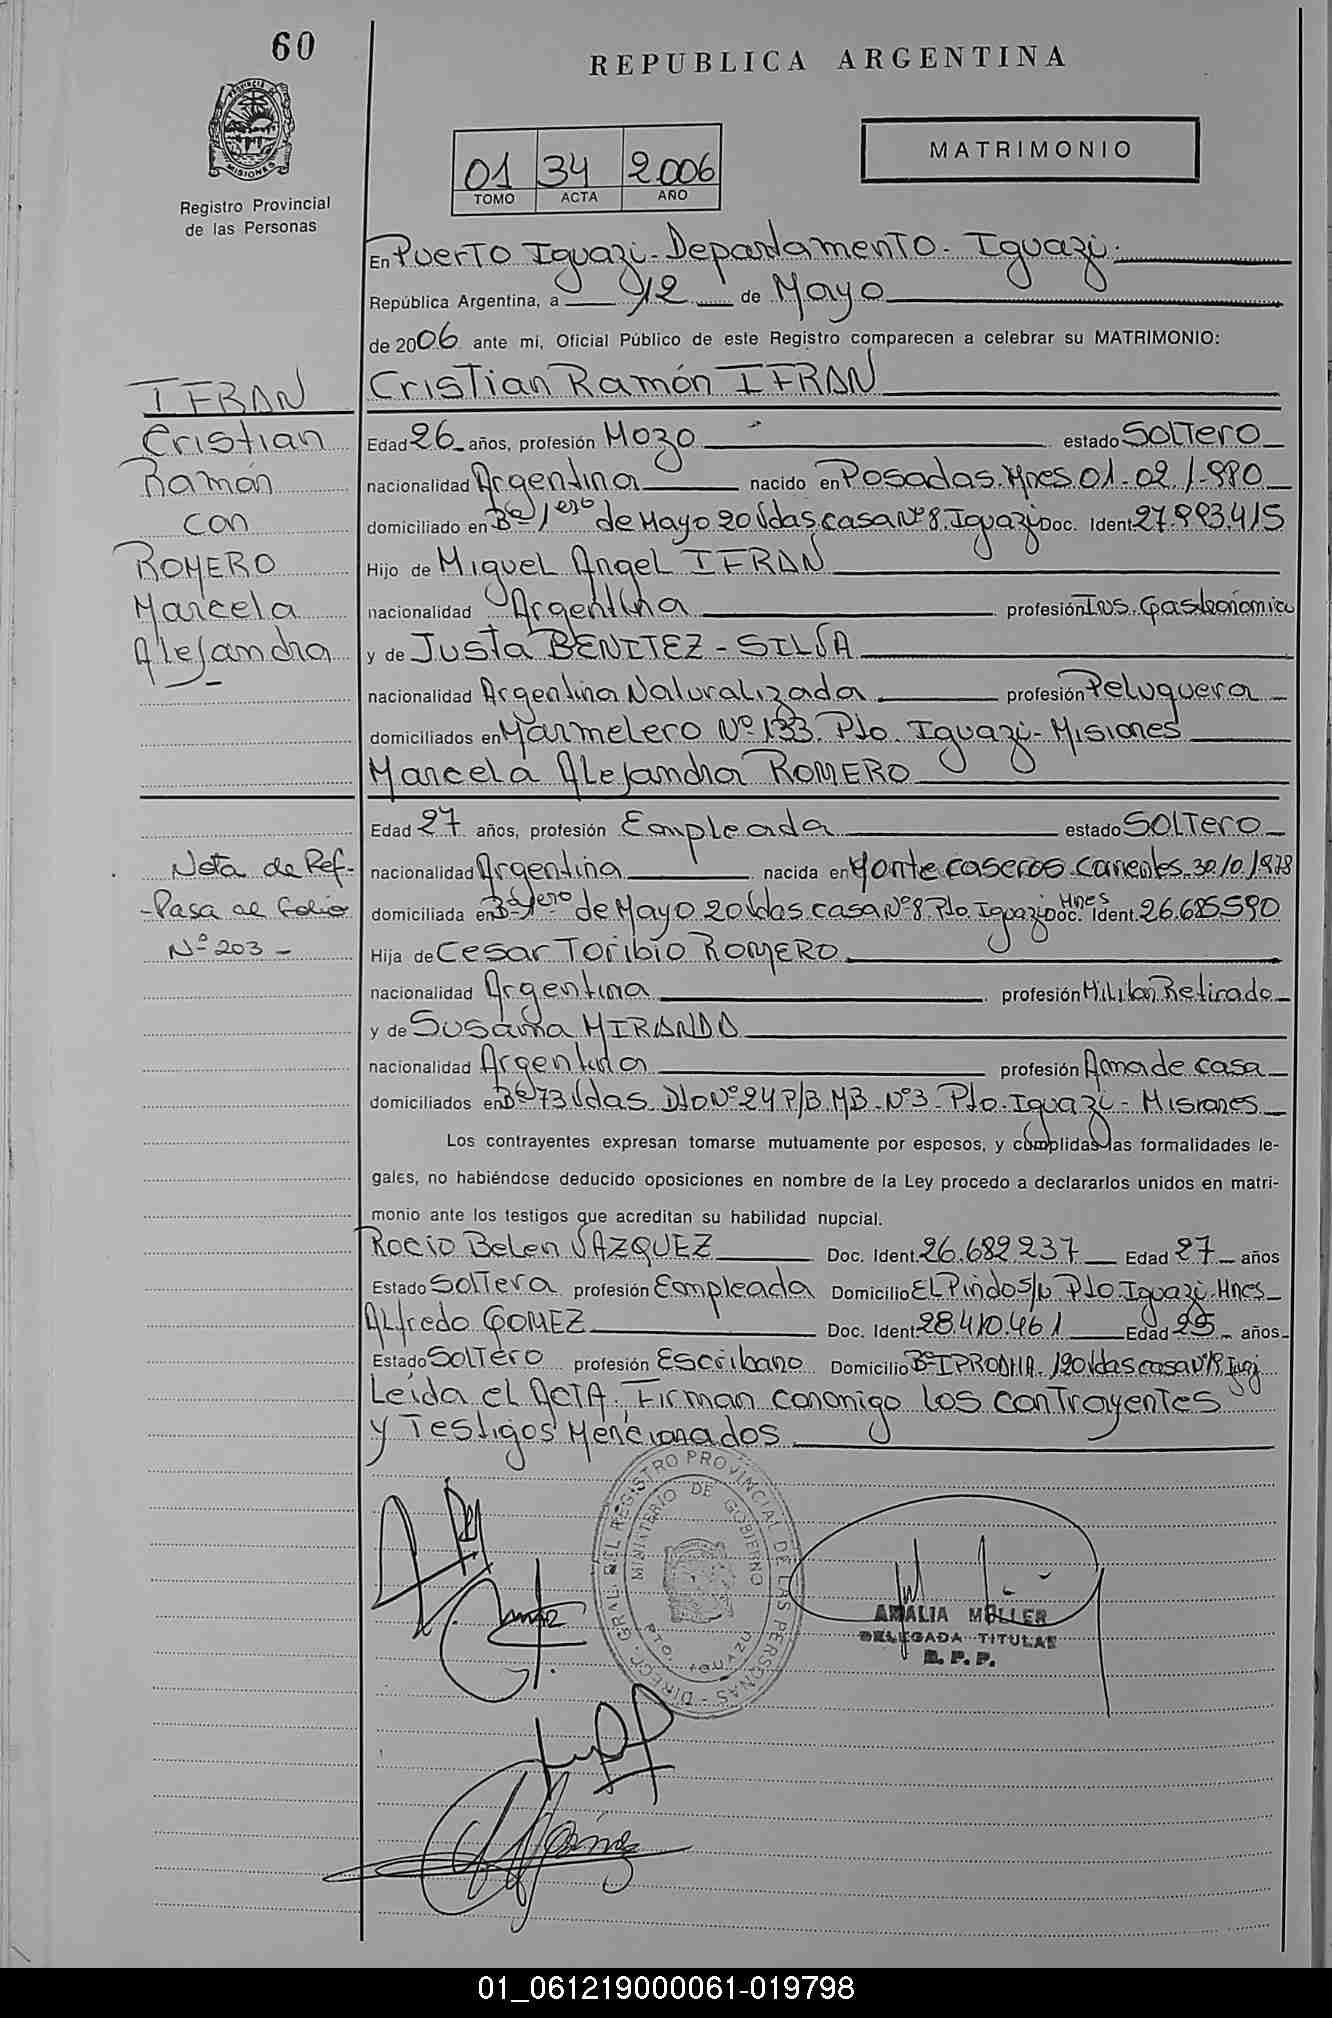 60
REPUBLICA ARGENTINA
PROVINCIA DE
MISIONES
Registro Provincial
de las Personas
MATRIMONIO
01 34 2.006
TOMO ACTA AÑO
En Puerto Iguazú - Departamento - Iguazú.
República Argentina, a 12 de Mayo
de 2006 ante mí, Oficial Público de este Registro comparecen a celebrar su MATRIMONIO:
Cristian Ramón IFRAN
IFRAN
Cristian
Ramón
con
ROMERO
Marcela
Alejandra
Edad 26 años, profesión Mozo estado SOLTERO
nacionalidad Argentina nacido en Posadas. Mnes. 01-02-1.980
domiciliado en Bº 1ero de Mayo 20 Vdas. casa Nº 8. Iguazú Doc. Ident. 27.993.415
Hijo de Miguel Angel IFRAN
nacionalidad Argentina profesión Ins. Gastronómico
y de Justa BENITEZ - SILVA
nacionalidad Argentina Naturalizada profesión Peluquera
domiciliados en Marmelero Nº 133. Pto. Iguazú - Misiones
Marcela Alejandra ROMERO
Edad 27 años, profesión Empleada estado SOLTERO
nacionalidad Argentina nacida en Monte Caseros. Corrientes.
domiciliada en Bº 1ero de Mayo 20 Vdas. casa Nº 8. Pto. Iguazú Mnes Doc. Ident. 26.685.590
Nota de Ref-
-Pasa al folio
Nº 203 -
Hija de Cesar Toribio ROMERO
nacionalidad Argentina profesión Militar Retirado
y de Susana MIRANDA
nacionalidad Argentina profesión Ama de casa
domiciliados en Bº 73 Vdas. Dto Nº 24 P/B MB. Nº 3 - Pto. Iguazú - Misiones
Los contrayentes expresan tomarse mutuamente por esposos, y cumplidas las formalidades le-
gales, no habiéndose deducido oposiciones en nombre de la Ley procedo a declararlos unidos en matri-
monio ante los testigos que acreditan su habilidad nupcial.
Rocio Belen VAZQUEZ Doc. Ident. 26.682.237 Edad 27 años
Estado Soltera profesión Empleada Domicilio El Pindo S/N Pto. Iguazú. Mnes
Alfredo GOMEZ Doc. Ident. 28.410.461 Edad 25 años
Estado Soltero profesión Escribano Domicilio Bº IPRODHA. 120 Vdas casa Nº
Leída el ACTA, Firman conmigo los contrayentes
y Testigos Mencionados
DIRECC. GRAL. DEL REGISTRO PROVINCIAL DE LAS PERSONAS
MINISTERIO DE GOBIERNO
PTO. IGUAZU
AMALIA MÜLLER
DELEGADA TITULAR
R. P. P.
01_061219000061-019798